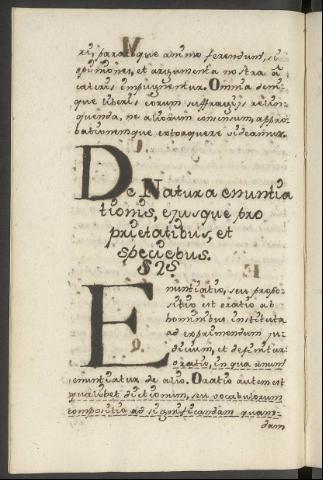 ri, paratoque animo ferendum, si
opiniones, et argumenta nostra à
cæteris impugnentur. Omnia deni-
que liberis eorum suffragijs relin-
quenda, ne aliorum consensum, appro-
bationemque extorquere videamur.
De Natura enuntia
tionis, ejusque pro
prietatibus, et
speciebus.
§ 2º.
Enuntiatio, seu propo-
sitio est oratio ab
hominibus instituta
ad exprimendum ju-
dicium, et definitur:
oratio, in qua unum
enuntiatur de alio. Oratio autem est
quælibet dictionum, seu vocabulorum
compositio ad significandam quam-
dam